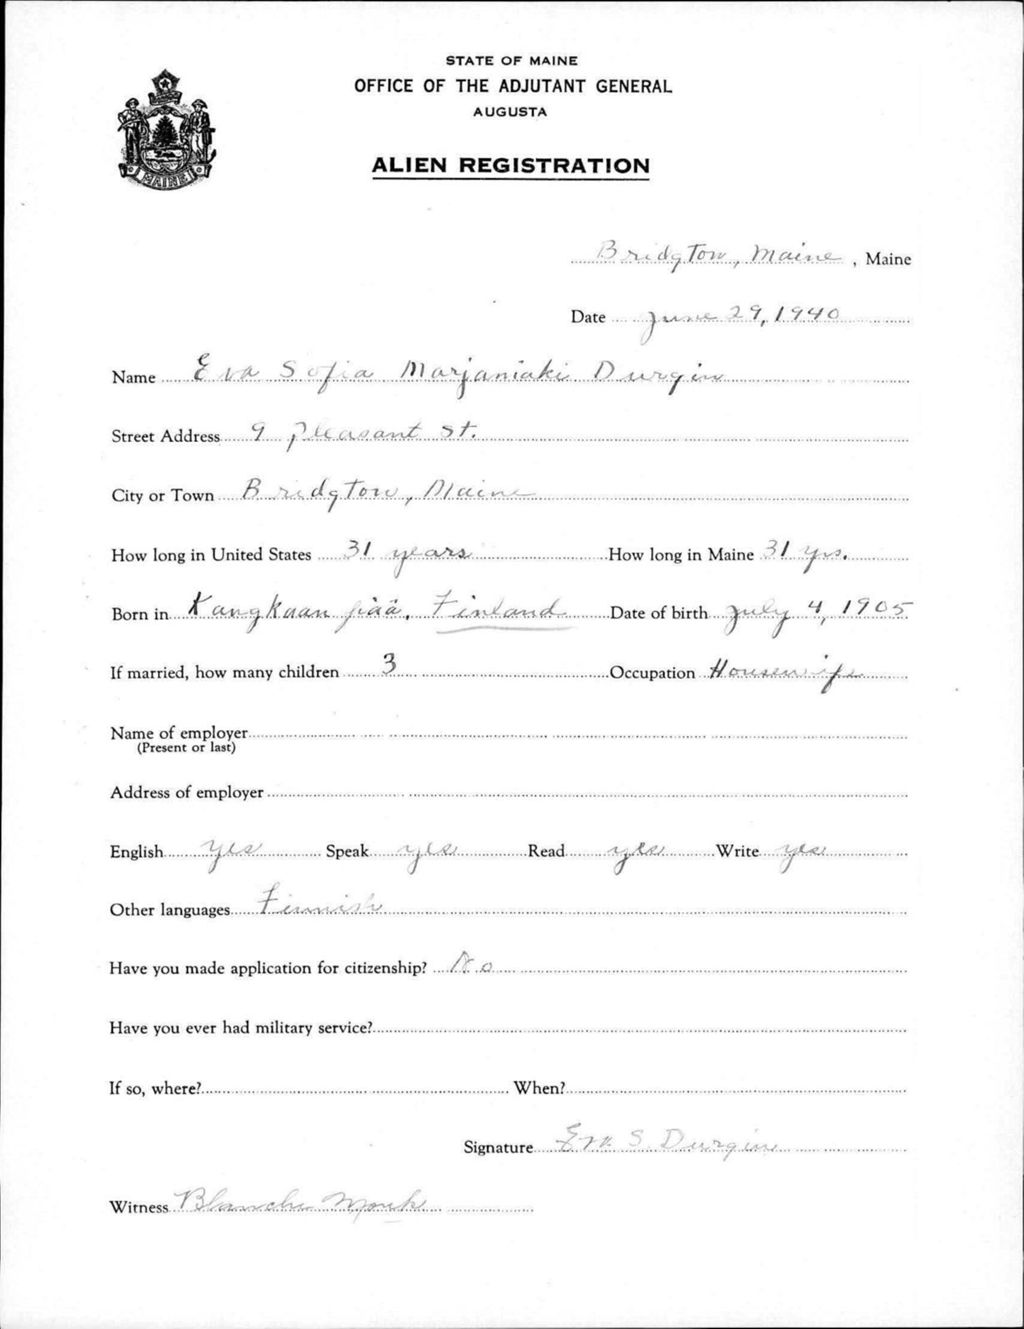 STATE OF MAINE
OFFICE OF THE ADJUTANT GENERAL
AUGUSTA
MAINE
ALIEN REGISTRATION
Bridgton, Maine , Maine
Date June 29, 1940
Name Eva Sofia Marjaniaki Durgin
Street Address 9 Pleasant St.
City or Town Bridgton, Maine
How long in United States 31 years How long in Maine 31 yrs.
Born in Kangkaan pää, Finland Date of birth July 4, 1905
If married, how many children 3 Occupation Housewife
Name of employer
(Present or last)
Address of employer
English yes Speak yes Read yes Write yes
Other languages Finnish
Have you made application for citizenship? No
Have you ever had military service?
If so, where? When?
Signature Eva S. Durgin
Witness Blanche